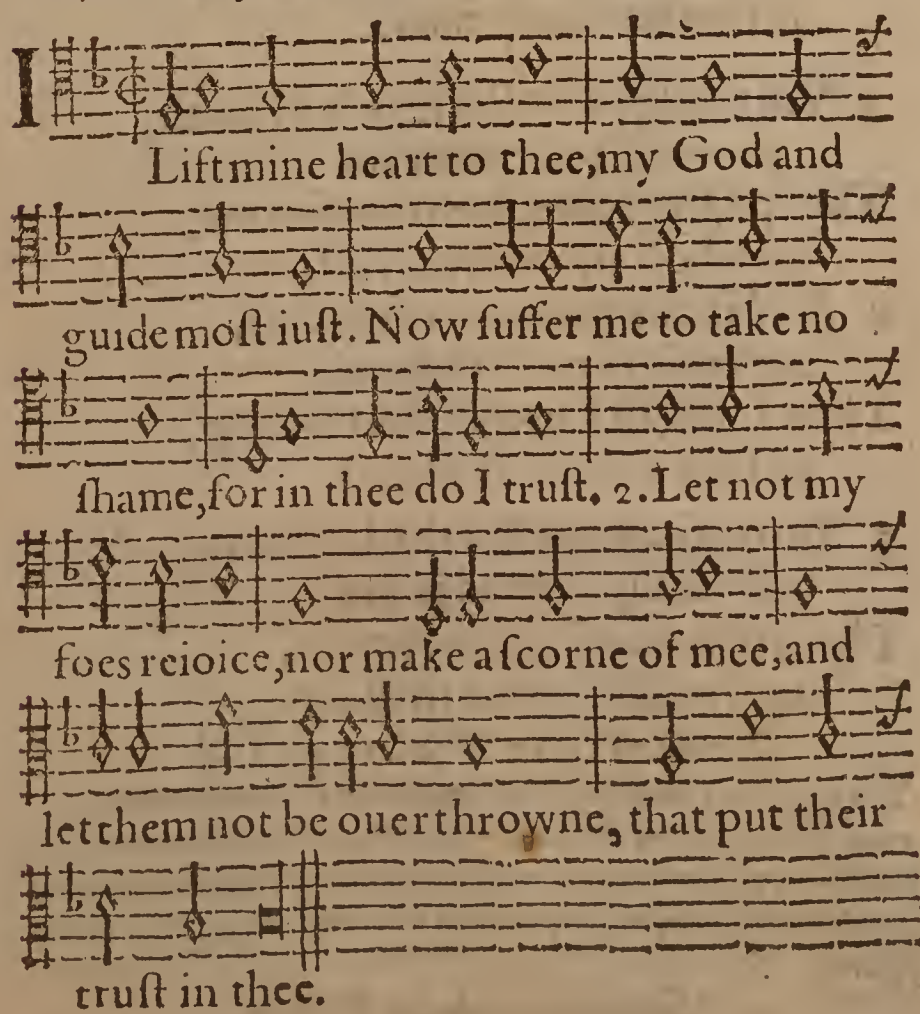 I
Lift mine heart to thee, my God and
guide moſt iuſt. Now ſuffer me to take no
ſhame, for in thee do I truſt. 2. Let not my
foes reioice, nor make a ſcorne of mee, and
let them not be ouerthrowne, that put their
truſt in thee.